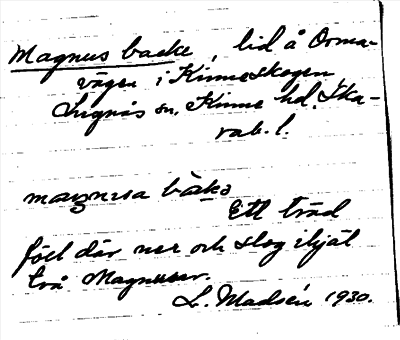 Magnus backe, lid å Orma-
vägen i Kinneskogen
Lugnås sn. Kinne hd. Ska-
rab. l.
magnusa bàkə
Ett träd
föll där ner och slog ihjäl
två Magnusar.
L. Madsén 1930.